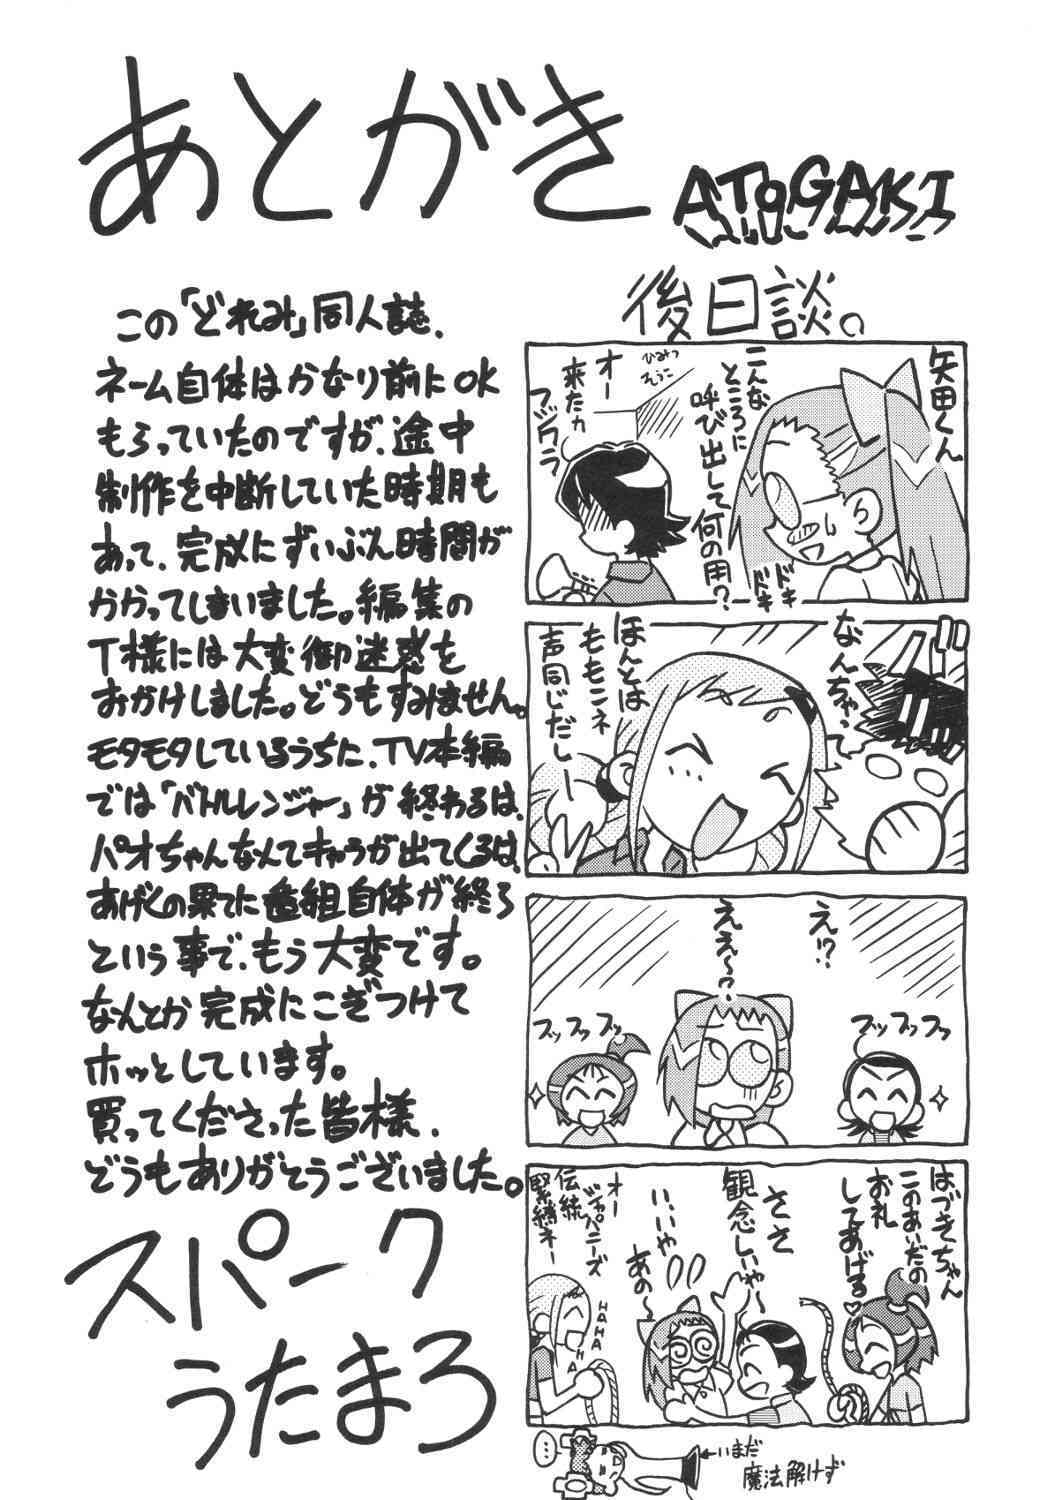 あとがき
ATOGAKI
この「どれみ」同人誌、
ネーム自体はかなり前にOK
もらっていたのですが、途中
制作を中断していた時期も
あって、完成にずいぶん時間が
かかってしまいました。編集の
T様には大変御迷惑を
おかけしました。どうもすみません。
モタモタしているうちに、TV本編
では「バトルレンジャー」が終わるは、
パオちゃんなんてキャラが出てくるは、
あげくの果てに番組自体が終る
という事で、もう大変です。
なんとか完成にこぎつけて
ホッとしています。
買ってくださった皆様、
どうもありがとうございました。
スパーク
うたまろ
後日談。
矢田くん
こんな
ところに
呼び出して何の用?
ドキ
ドキ
ひみつ
そうこ
オー
来たカ
フジワラ
なんちゃっ
ほんとは
ももこネ
声同じだしー
え!?
ええ〜っ
プップップッ
プップップッ
はづきちゃん
このあいだの
お礼
してあげる♥
ささ
観念しぃや〜
いいや
あの〜
オー
ジャパニーズ
伝統
緊縛ネー
HAHA
HAHA
…
←いまだ
魔法解けず